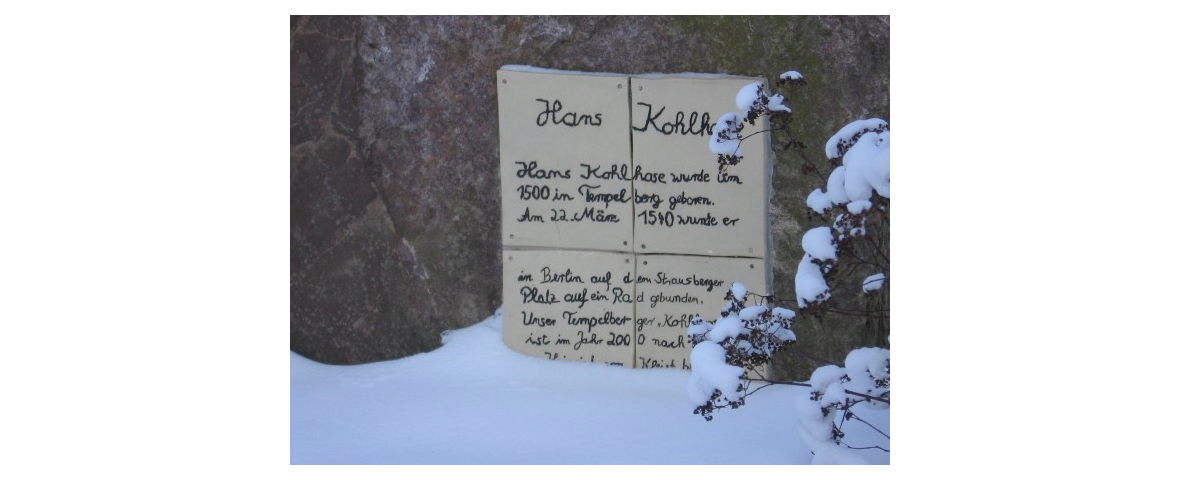 Hans Kohlh
Hans Kohlhase wurde um
1500 in Tempelberg geboren.
Am 22. März 1540 wurde er
in Berlin auf dem Strausberger
Platz auf ein Rad gebunden.
Unser Tempelberger „Kohlh
ist im Jahr 2000 nach